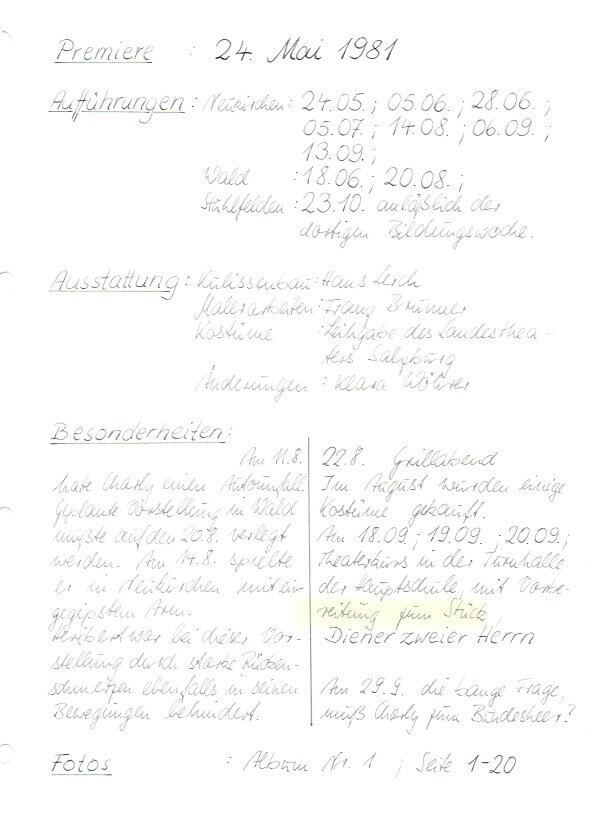 Premiere : 24. Mai 1981
Aufführungen : Neukirchen : 24.05. ; 05.06. ; 28.06. ;
05.07. ; 14.08. ; 06.09. ;
13.09. ;
Wald : 18.06. ; 20.08. ;
Stuhlfelden : 23.10. anläßlich der
dortigen Bildungswoche.
Ausstattung : Kulissenbau : Hans Lerch
Malerarbeiten : Franz Brunner
Kostüme : Leihgabe des Landesthea-
ters Salzburg
Änderungen : Klara Wöhrer
Besonderheiten :
Am 11.8.
hatte Charly einen Autounfall.
Geplante Vorstellung in Wald
mußte auf den 20.8. verlegt
werden. Am 14.8. spielte
er in Neukirchen mit ein-
gegipsten Arm.
Heribert war bei dieser Vor-
stellung durch starke Rücken-
schmerzen ebenfalls in seinen
Bewegungen behindert.
22.8. Grillabend
Im August wurden einige
Kostüme gekauft.
Am 18.09. ; 19.09. ; 20.09. ;
Theaterkurs in der Turnhalle
der Hauptschule, mit Vorbe-
reitung zum Stück
Diener zweier Herrn
Am 29.9. die bange Frage,
muß Charly zum Bundesheer?
Fotos : Album Nr. 1 ; Seite 1-20